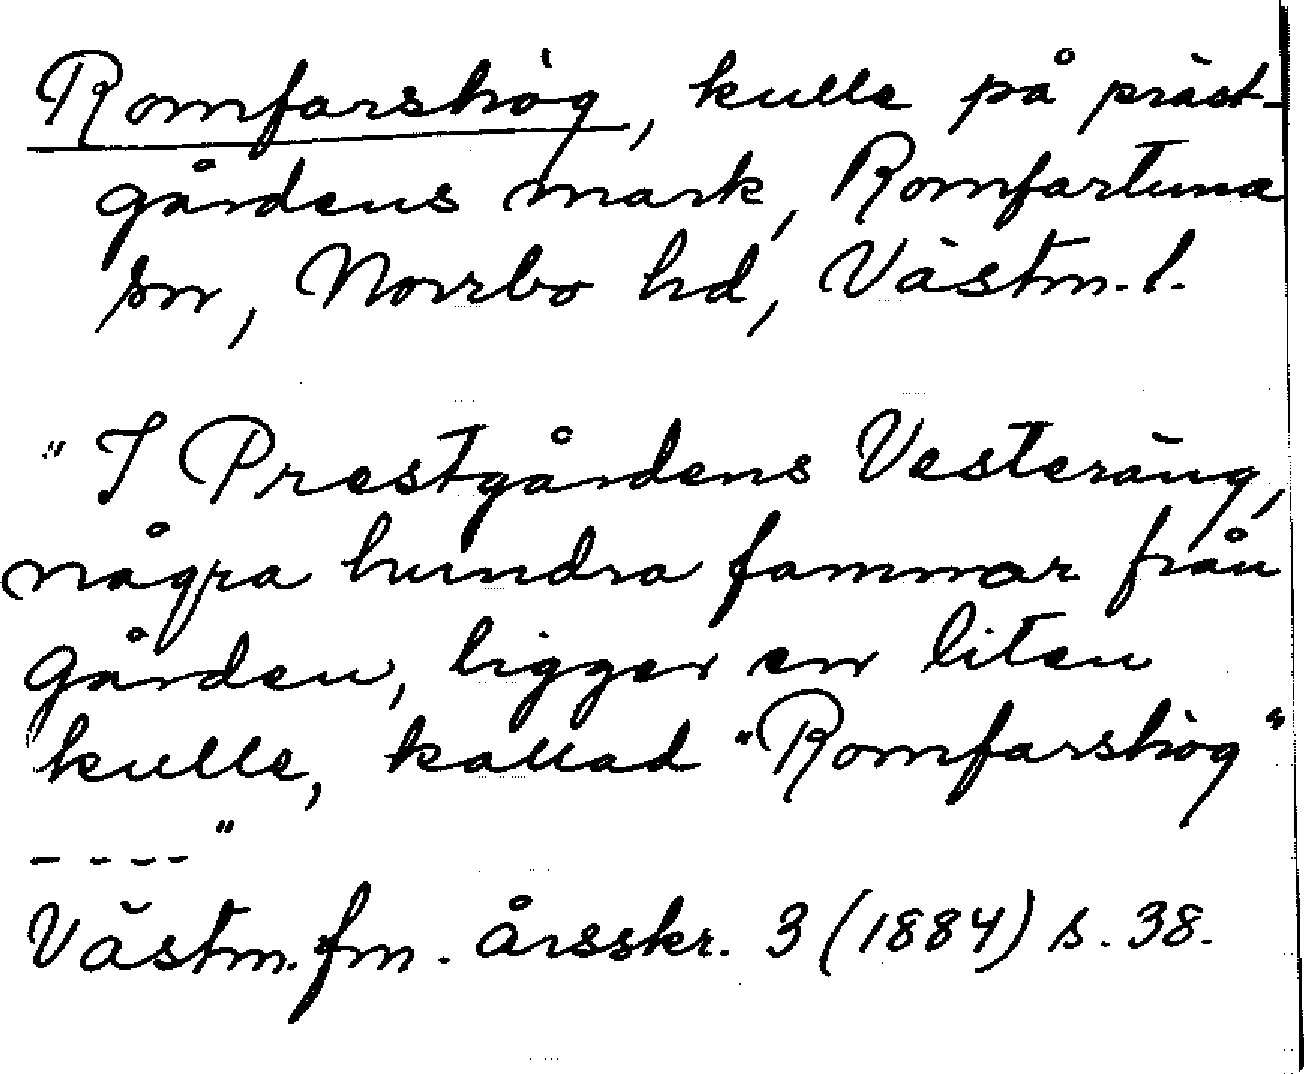 Romfarshög, kulle på präst-
gårdens mark, Romfartuna
sn, Norrbo hd, Västm. l.
"I Prestgårdens Vesteräng,
några hundra famnar från
gården, ligger en liten
kulle, kallad "Romfarshög"
----"
Västm. fm. årsskr. 3 (1884) s. 38.